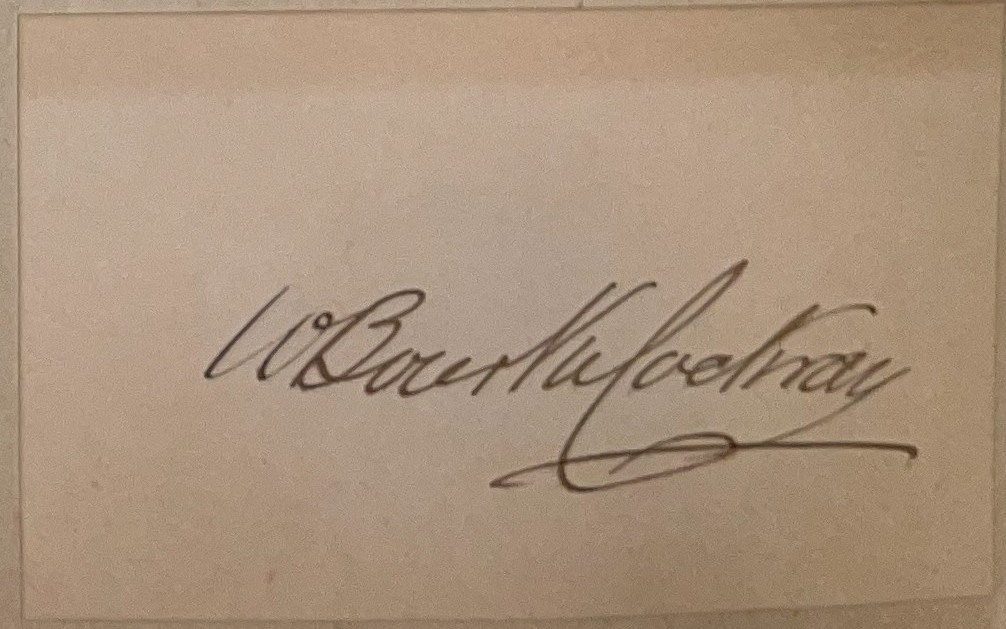 W Bourke Cockran